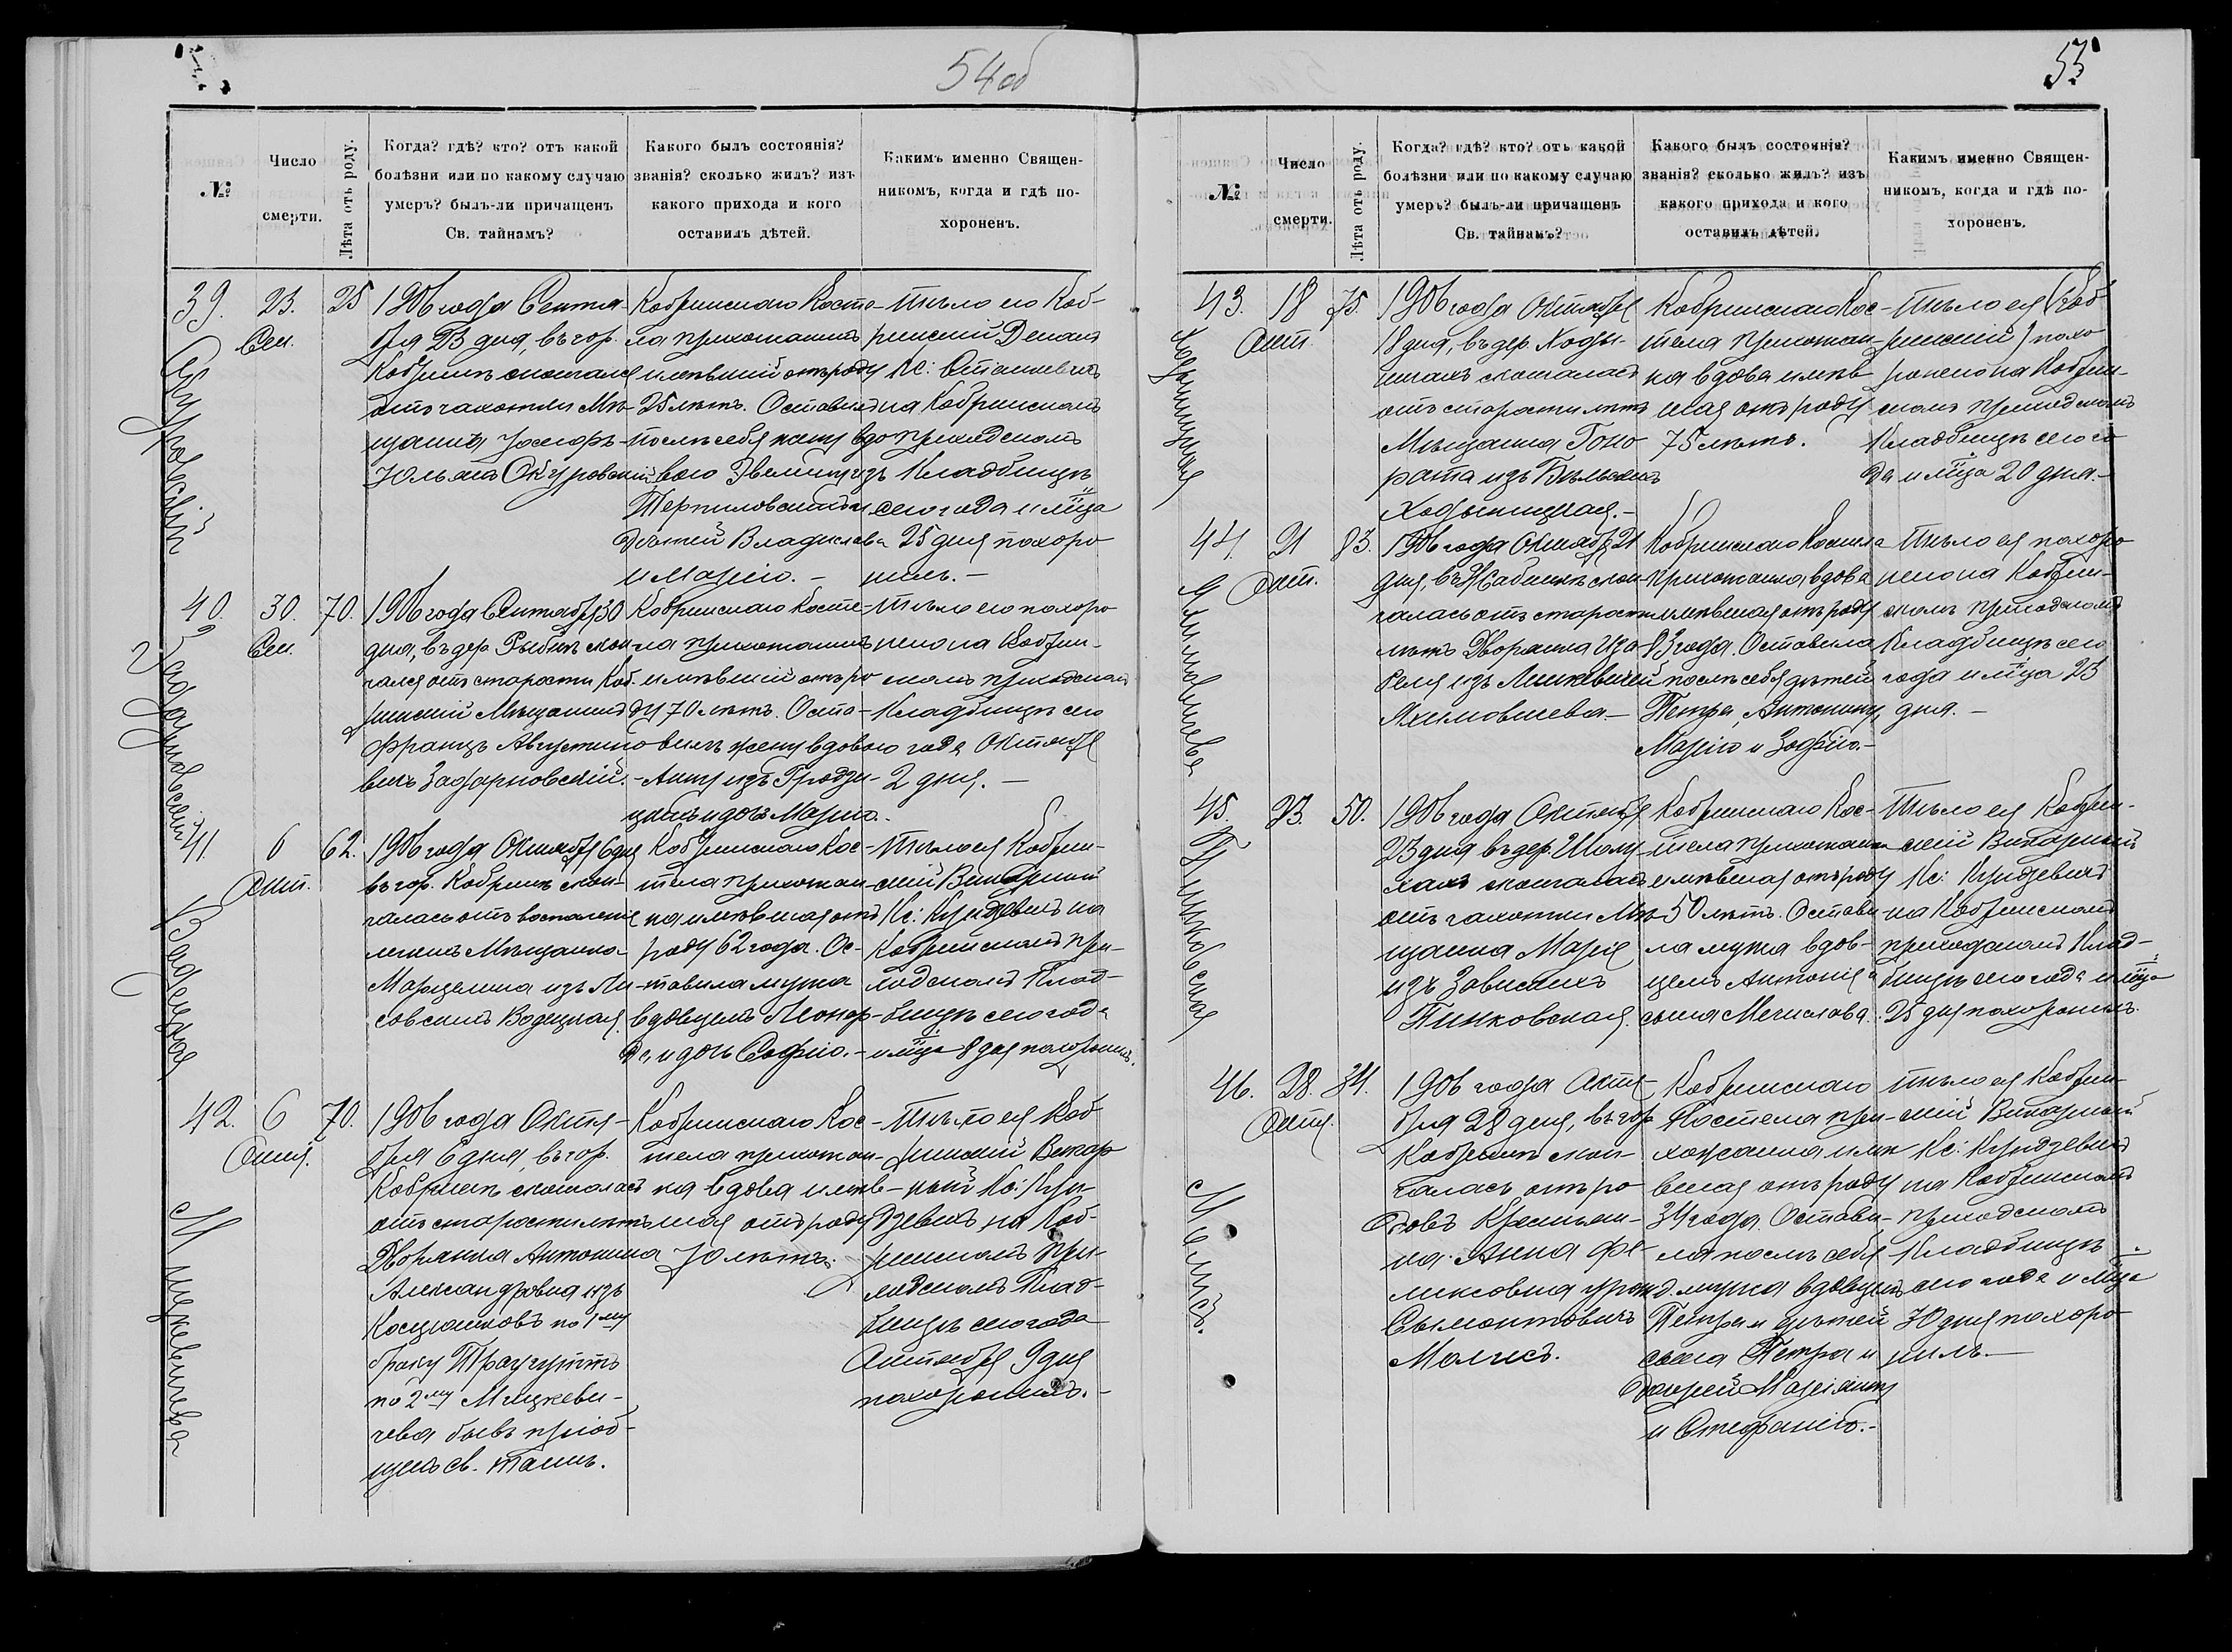 54 об
№
Число
смерти.
Лѣта отъ роду.
Когда? гдѣ? кто? отъ какой
болѣзни или по какому случаю
умеръ? былъ-ли причащенъ
Св. тайнамъ?
Какого былъ состоянія?
званія? сколько жилъ? изъ
какого прихода и кого
оставилъ дѣтей.
Какимъ именно Священ-
никомъ, когда и гдѣ по-
хороненъ.
39.
23.
Сен.
25
1906 года Сентя-
бря 23 дня, въ гор.
Кобринѣ скончался
отъ чахотки Мѣ-
щанинъ
Юльянъ Окуровскій
Кобринскаго Косте-
ла прихожанинъ
имѣвшій отъ роду
25 лѣтъ. Оставилъ
послѣ себя жену вдо-
вою Эвелину изъ
Терпиловскихъ и
дѣтей Владислава
и Марію. –
Тѣло его Коб-
ринскій Деканъ
Кс:
на Кобринскомъ
приходскомъ
Кладбищѣ
сего года и м͠ца
25 дня похоро
нилъ. –
40.
30.
Сен.
70.
Задарновскій
1906 года Сентября 30
дня, въ дер. Рыбнѣ скон-
чался отъ старости Коб-
ринскій Мѣщанинъ
Францъ Августино
вичъ Задарновскій. –
Кобринскаго Косте-
ла прихожанинъ
имѣвшій отъ ро
ду 70 лѣтъ. Оста-
вилъ жену вдовою
Анну изъ Гродзи-
цкихъ и дочь Марію.
Тѣло его похоро
нено на Кобрин-
скомъ приходскомъ
Кладбищѣ сего
года Октября
2 дня. –
41.
6
Окт.
62.
Водецкая
1906 года Октября 6 дня
въ гор. Кобринѣ скон-
чалась отъ воспаленія
легкихъ Мѣщанка
Марцелина изъ Ли-
совскихъ Водецкая.
Кобринскаго Кос-
тела прихожан-
ка имѣвшая отъ
роду 62 года. Ос-
тавила мужа
вдовцемъ Леонар-
да, и дочь Софію. –
Тѣло ея Кобрин-
скій Викарный
Кс: Кундзевичъ на
Кобринскомъ при-
ходскомъ Клад-
бищѣ сего года
и м͠ца 8 дня похоронилъ.
42.
6
Окт.
70.
Мицкевичева
1906 года Октя-
бря 6 дня, въ гор.
Кобринѣ скончалась
отъ старости лѣтъ
Дворянка Антонина
Александровна изъ
Косцюшковъ по 1му
браку Траугуттъ
по 2му Мицкеви-
чева бывъ пріоб-
щена св. таинъ.
Кобринскаго Кос-
тела прихожан-
ка вдова имѣв-
шая отъ роду
70 лѣтъ.
Тѣло ея Коб
ринскій Викар
ный Кс: Кун-
дзевичъ на Коб-
ринскомъ при-
ходскомъ Клад-
бищѣ сего года
Октября 9 дня
похоронилъ. –
55
№
Число
смерти.
Лѣта отъ роду.
Когда? гдѣ? кто? отъ какой
болѣзни или по какому случаю
умеръ? былъ-ли причащенъ
Св. тайнамъ?
Какого былъ состоянія?
званія? сколько жилъ? изъ
какого прихода и кого
оставилъ дѣтей.
Какимъ именно Священ-
никомъ, когда и гдѣ по-
хороненъ.
43.
18
Окт.
75.
Ходыницкая
1906 года Октября
18 дня, въ дер. Ходы-
ничахъ скончалась
отъ старости лѣтъ
Мѣщанка Гоно
рата изъ Бѣльскихъ
Ходыницкая. –
Кобринскаго Кос-
тела прихожан-
ка вдова имѣв
шая отъ роду
75 лѣтъ.
Тѣло ея (Коб
ринскій) похо
ронено на Кобрин-
скомъ приходскомъ
Кладбищѣ сего го
да и м͠ца 20 дня. –
44.
21
Окт.
83.
Яхимовичева
1906 года Октября 21
дня, въ Жабинкѣ скон-
чалась отъ старости
лѣтъ Дворянка Иза-
белла изъ
Яхимовичева. –
Кобринскаго Костела
прихожанка, вдова
имѣвшая отъ роду
83 года. Оставила
послѣ себя дѣтей
Петра, Антонину,
Марію и Зофію. –
Тѣло ея похоро
нено на Кобрин-
скомъ приходскомъ
Кладбищѣ сего
года и м͠ца 23
дня. –
45.
23.
50.
Пинковская
1906 года Октября
23 дня въ дер.
скончалась
отъ чахотки Мѣ-
щанка Марія
изъ Завискихъ
Пинковская.
Кобринскаго Кос-
тела прихожанка
имѣвшая отъ роду
50 лѣтъ. Остави
ла мужа вдов-
цемъ Антонія и
сына Мечислава.
Тѣло ея Кобрин-
скій Викарный
Кс: Кундзевичъ
на Кобринскомъ
приходскомъ Клад-
бищѣ сего года и м͠ца
25 дня похоронилъ.
46.
28.
Окт.
34.
1906 года Октя-
бря 28 дня, въ гор.
Кобринѣ скон-
чалась отъ ро
довъ Крестьян-
ка Анна Фе-
ликсовна урожд.
Сымонтовичъ
Кобринскаго
Костела при-
хожанка имѣ
вшая отъ роду
34 года. Остави-
ла послѣ себя
мужа вдовцемъ
Петра и дѣтей
сына Петра и
дочерей Маріанну
и Стефанію. –
Тѣло ея Кобрин-
скій Викарный
Кс: Кундзевичъ
на Кобринскомъ
приходскомъ
Кладбищѣ
сего года и м͠ца
30 дня похоро
нилъ. –